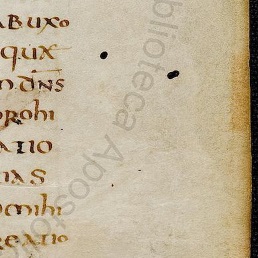 ABUXO
qux
m.dn̄s
prohi
ATIO
IAS
omihi
reatio
Biblioteca Aposto